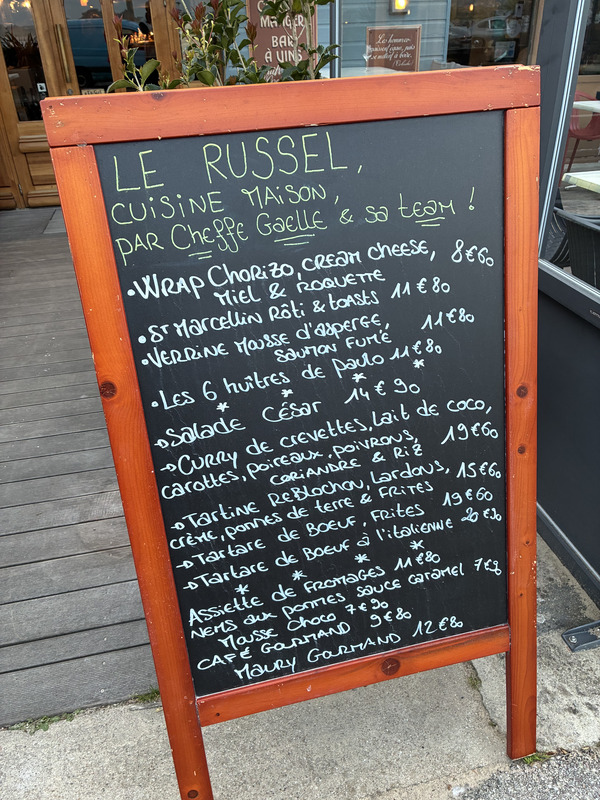 MANGER
BAR
À VINS
LE RUSSEL,
CUISINE MAISON,
PAR Cheffe Gaelle & sa team !
•WRAP CHORIZO, CREAM CHEESE, 8€60
MIEL & ROQUETTE
•ST MARCELLIN RÔTI & TOASTS 11€80
•VERRINE MOUSSE d'ASPERGE, 11€80
SAUMON FUMÉ
•Les 6 huîtres de paulo 11€80
* * * *
→Salade CÉSAR 14€90
→CURRY de crevettes, lait de coco,
carottes, poireaux, poivrons, 19€60
CORIANDRE & RIZ
→Tartine REBLOCHON, Lardons, 15€60
crème, pommes de terre & FRITES
→Tartare de BOEUF, FRITES 19€60
→Tartare de BOEUF à l'italienne 20€20
* * * *
Assiette de FROMAGES 11€80
NEMS aux pommes sauce caramel 7€90
Mousse Choco 7€90
CAFÉ GOURMAND 9€80
MAURY GOURMAND 12€80